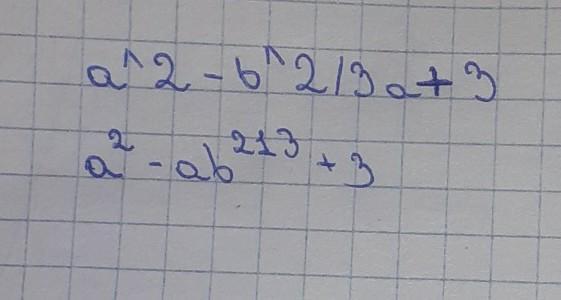 a^2-b^2/3a+3
a²-ab²¹³+3